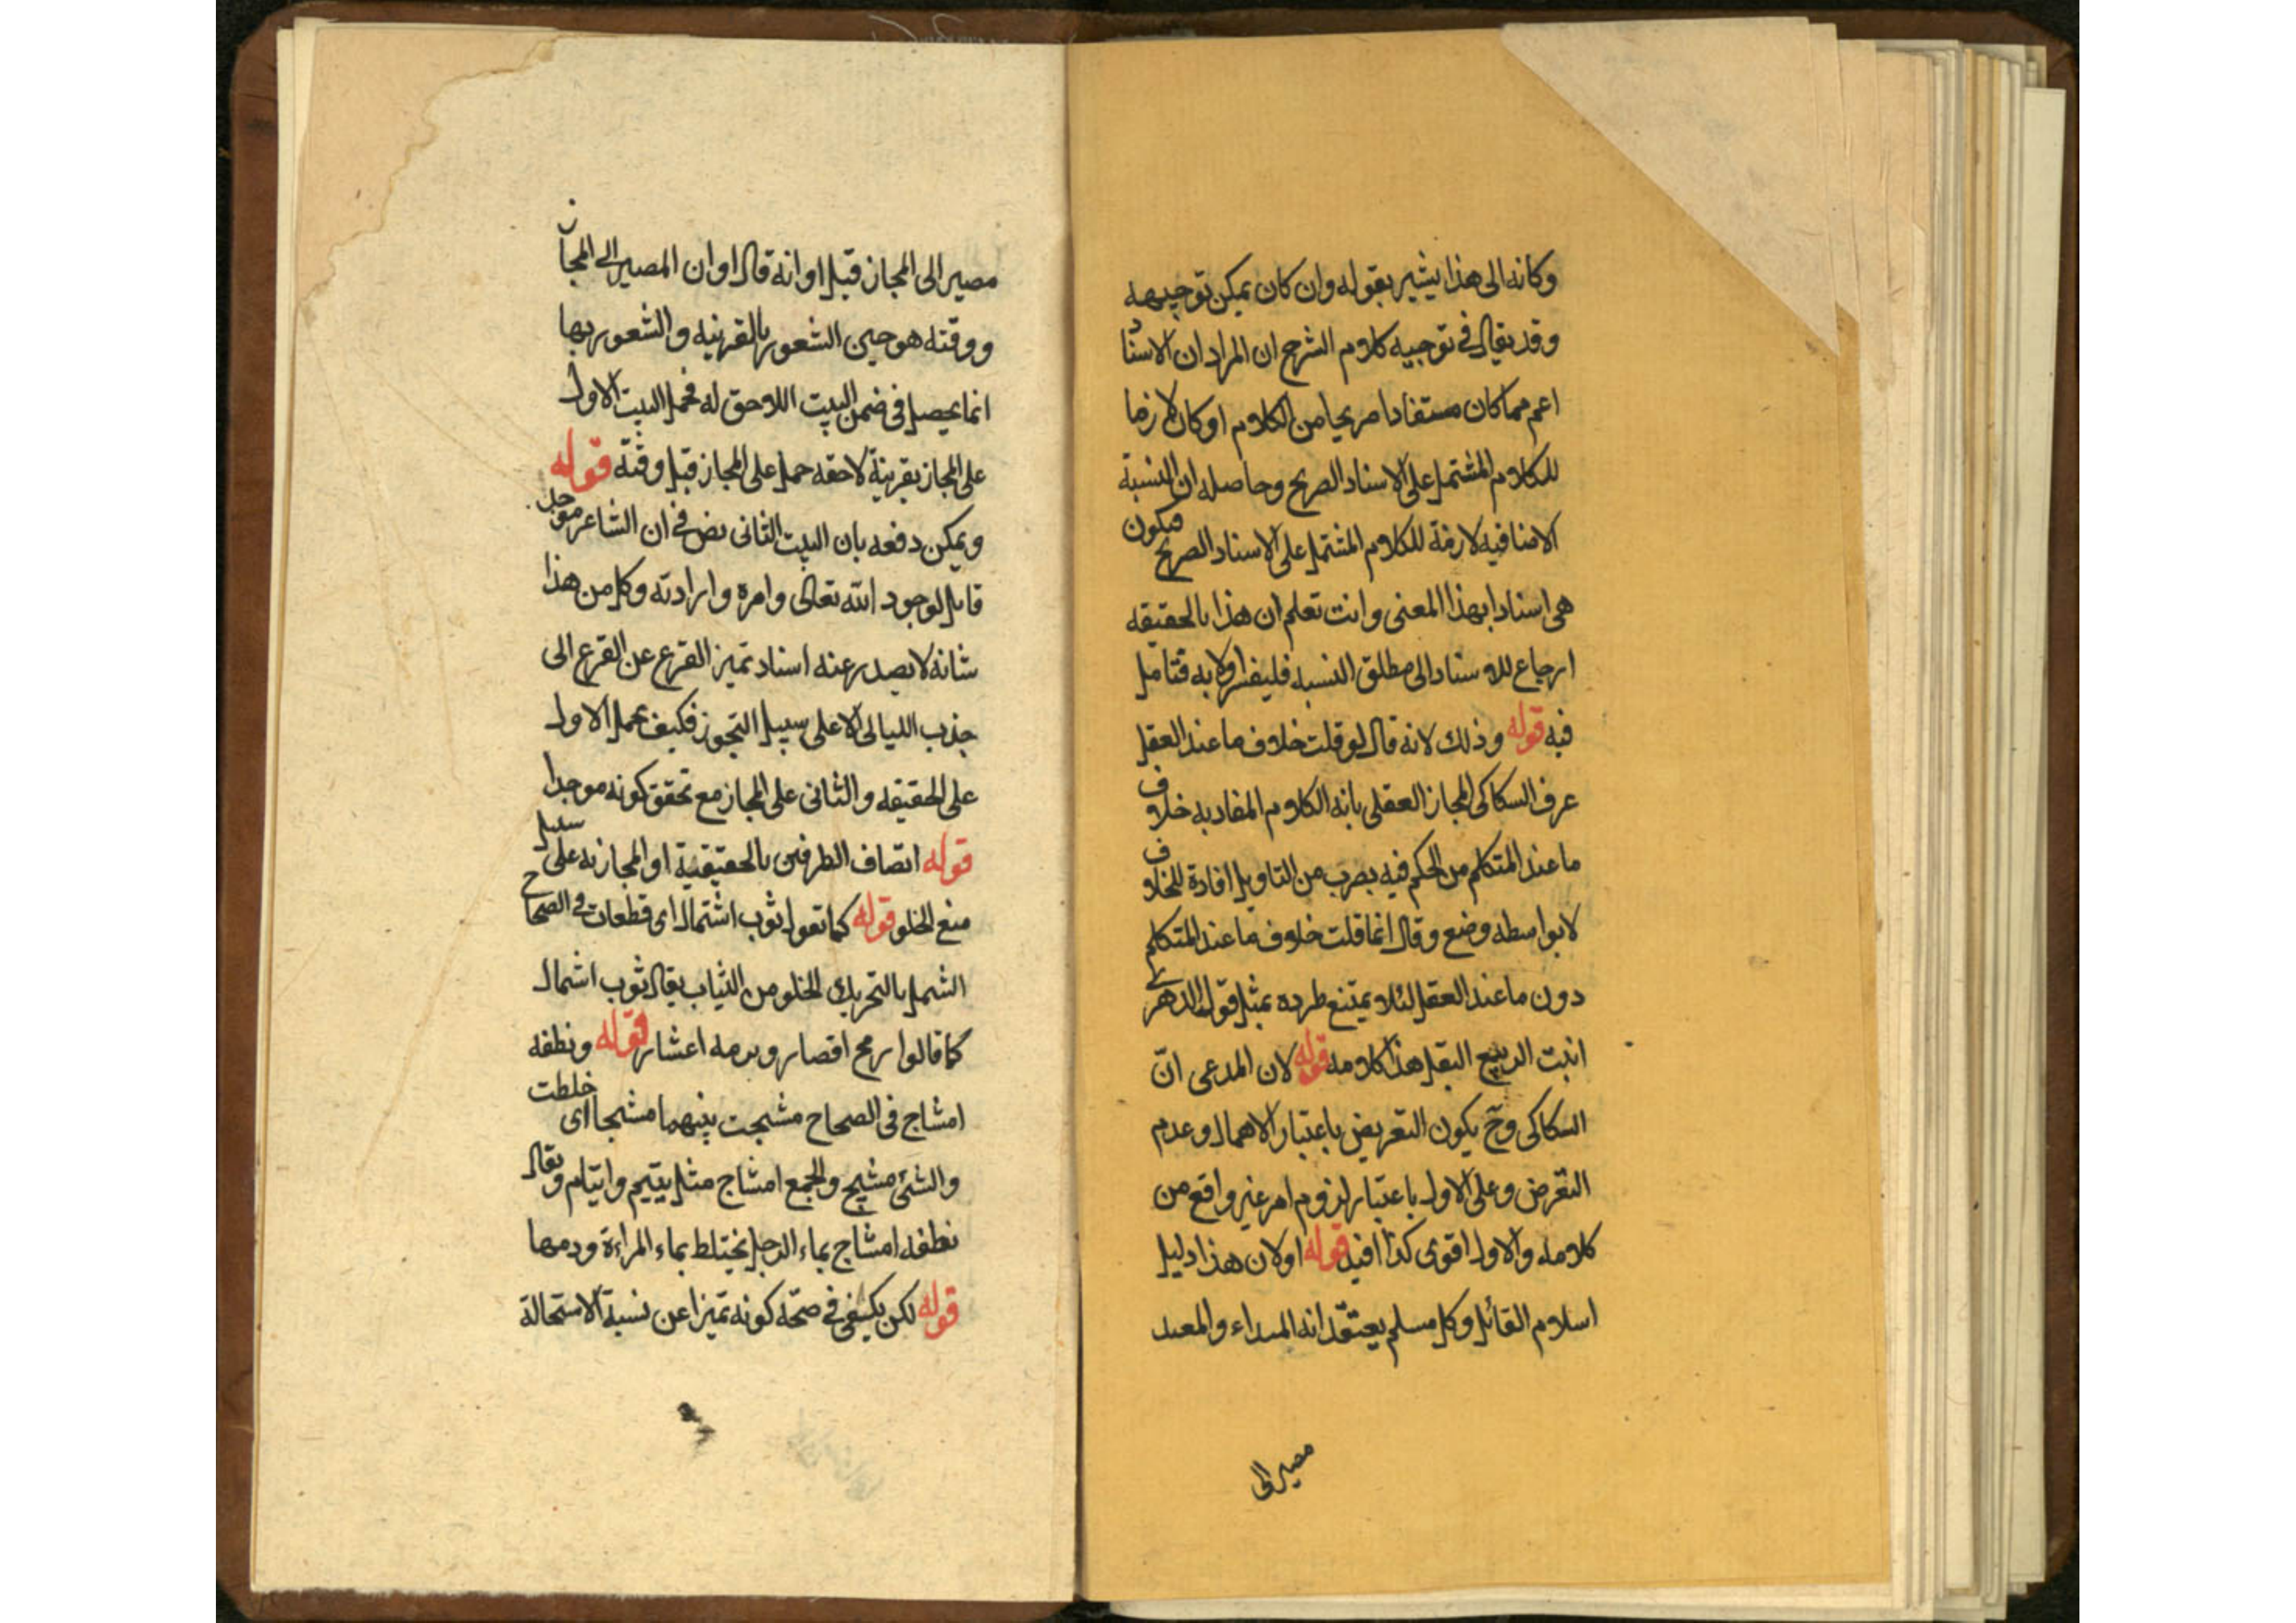 وكانه الى هذا يشير بقوله وان كان يمكن توجيهه
وقد يقال في توجيه كلام الشرح ان المراد ان الاسناد
اعم مما كان مستفادا صريحا من الكلام او كان لازما
للكلام المشتمل على الاسناد الصريح وحاصله ان النسبة
الاضافيه لازمة للكلام المشتمل على الاسناد الصريح فيكون
هى اسنادا بهذا المعنى وانت تعلم ان هذا بالحقيقه
ارجاع للاسناد الى مطلق النسبه فليفسر اولا به فتامل
فيه قوله وذلك لانه قال لو قلت خلاف ما عند العقل
عرف السكاكى المجاز العقلى بانه الكلام المفاد به خلاف
ما عند المتكلم من الحكم فيه بضرب من التاويل افادة للخلاف
لا بواسطه وضع وقال انما قلت خلاف ما عند المتكلم
دون ما عند العقل لئلا يمتنع طرده بمثل قول الدهرى
انبت الربيع البقل هذا كلامه قوله لان المدعى انّ
السكاكى وح يكون التعريض باعتبار الاهمال وعدم
التعرض وعلى الاول باعتبار لزوم امر غير واقع من
كلامه والاول اقوى كذا افيد قوله او لان هذا دليل
اسلام القائل وكل مسلم يعتقد انه المبداء والمعيد
مصير الى
مصير الى المجاز قبل اوانه قال اوان المصير الى المجاز
ووقته هو حين الشعور بالقرينه والشعور بها
انما يحصل فى ضمن البيت اللاحق له فحمل البيت الاول
على المجاز بقرينة لاحقه حمل على المجاز قبل وقته قوله
ويمكن دفعه بان البيت الثانى نص فى ان الشاعر موحد
قايل لوجود الله تعالى وامره وارادته وكل من هذا
شانه لا يصدر عنه اسناد تميز القزع عن القزع الى
جذب الليالى الا على سبيل التجوز فكيف يحمل الاول
على الحقيقه والثانى على المجاز مع تحقق كونه موحدا
قوله اتصاف الطرفين بالحقيقية او المجازيه على سبيل
منع الخلو قوله كما تقول ثوب اشتمال اى قطعات فى الصحاح
الشمل بالتحريك الخلو من الثياب يقال ثوب اشمال
كما قالوا رمح اقصار وبرمه اعشار قوله ونطفه
امشاج فى الصحاح مشجت بينهما مشجا اى خلطت
والشئ مشيج والجمع امشاج مثل يتيم وايتام ويقال
نطفه امشاج بماء الرجل يختلط بماء المراءة ودمها
قوله لكن يكفى فى صحّه كونه تميزا عن نسبة الاستحالة